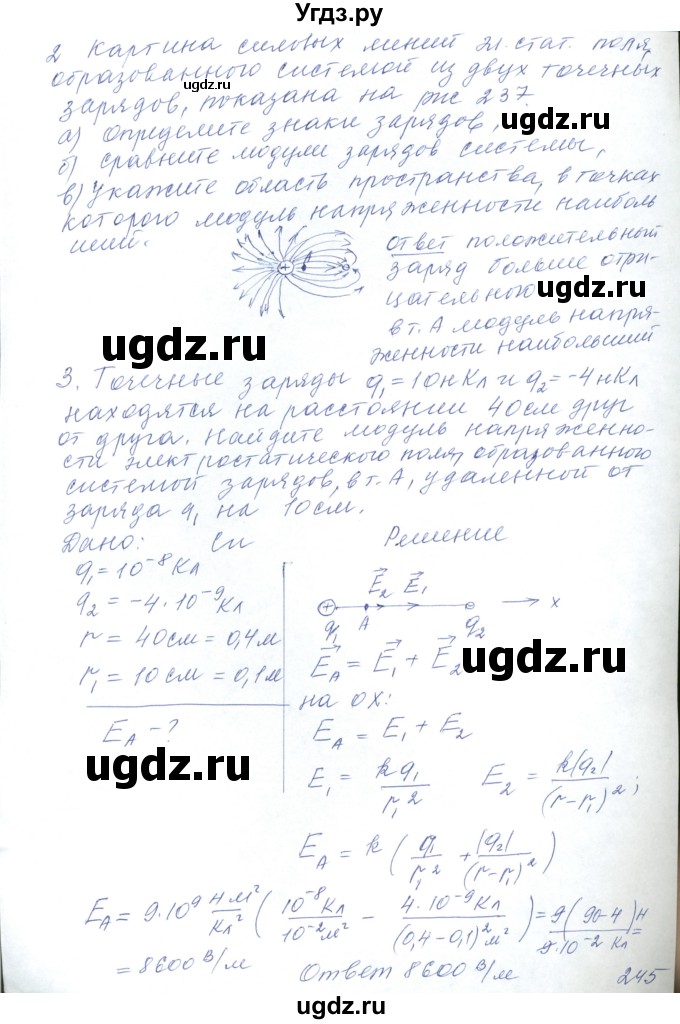 Угдз.ру
2 Картина силовых линий эл. стат. поля,
образованного системой из двух точечных
зарядов, показана на рис 237.
а) Определите знаки зарядов,
б) сравните модули зарядов системы,
в) Укажите область пространства, в точках
которого модуль напряженности наиболь
ший.
+ A -
Ответ положительный
заряд больше отри-
цательного
в т. А модуль напря-
женности наибольший
ugdz.ru
ugdz.ru
3. Точечные заряды q₁ = 10нКл и q₂ = -4нКл
находятся на расстоянии 40см друг
от друга. Найдите модуль напряженно-
сти электростатического поля, образованного
системой зарядов, в т. А, удаленной от
заряда q₁ на 10см.
Дано: Си Решение
q₁ = 10⁻⁸ Кл
q₂ = -4·10⁻⁹ Кл
r = 40см = 0,4м
r₁ = 10см = 0,1м
E_A - ?
E⃗₂ E⃗₁
+ - x
q₁ A q₂
E⃗_A = E⃗₁ + E⃗₂
ugdz.ru
на ОХ:
E_A = E₁ + E₂
ugdz.ru
E₁ = kq₁/r₁² E₂ = k|q₂|/(r-r₁)²;
E_A = k(q₁/r₁² + |q₂|/(r-r₁)²)
E_A = 9·10⁹ Нм²/Кл² (10⁻⁸Кл/10⁻²м² - 4·10⁻⁹Кл/(0,4-0,1)²м²) = 9(90-4)Н/9·10⁻² Кл =
= 8600 В/м Ответ 8600 В/м
245
ugdz.ru